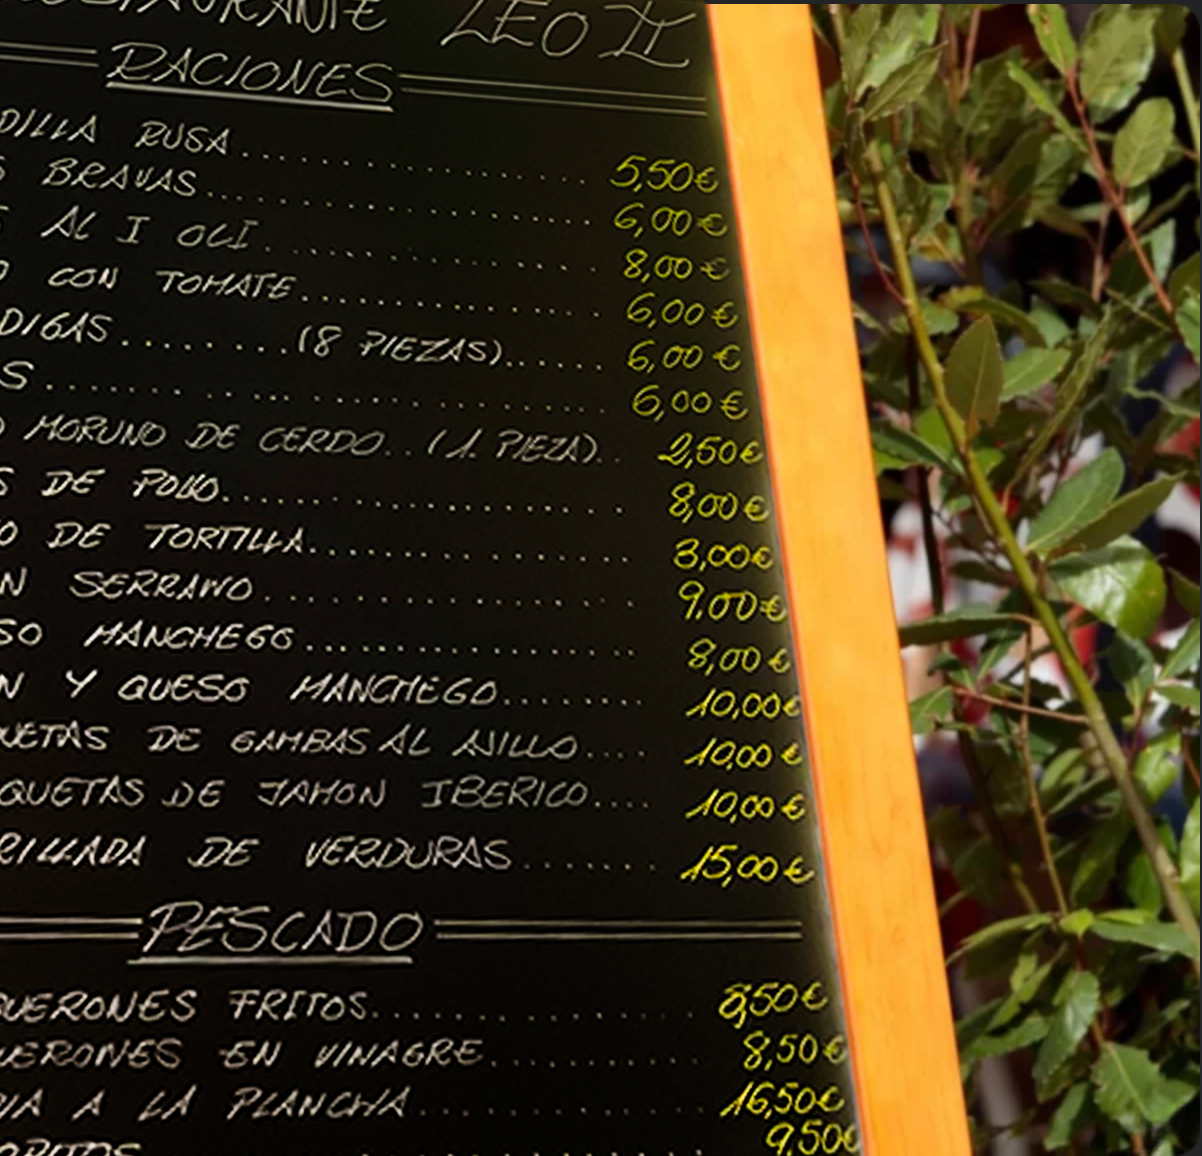 RESTAURANTE LEO II
RACIONES
DILLA RUSA 5,50€
S BRAVAS 6,00€
S AL I OLI 8,00€
O CON TOMATE 6,00€
DIGAS (8 PIEZAS) 6,00€
S 6,00€
O MORUNO DE CERDO (1 PIEZA) 2,50€
S DE POLLO 8,00€
O DE TORTILLA 3,00€
N SERRANO 9.00€
SO MANCHEGO 8,00€
N Y QUESO MANCHEGO 10,00€
UETAS DE GAMBAS AL AJILLO 10,00€
QUETAS DE JAMON IBERICO 10,00€
RILLADA DE VERDURAS 15,00€
PESCADO
UERONES FRITOS 8,50€
UERONES EN VINAGRE 8,50€
IA A LA PLANCHA 16,50€
OPITOS 9,50€